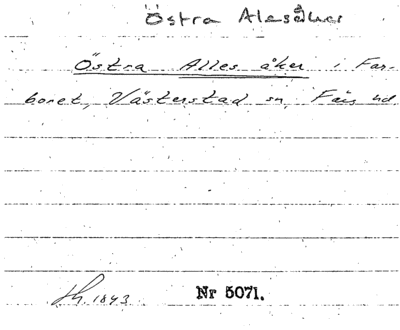 Östra Alesåker
Östra Alles åker i Far-
boret, Västerstad sn, Färs hd
Th. 1843 Nr 5071.